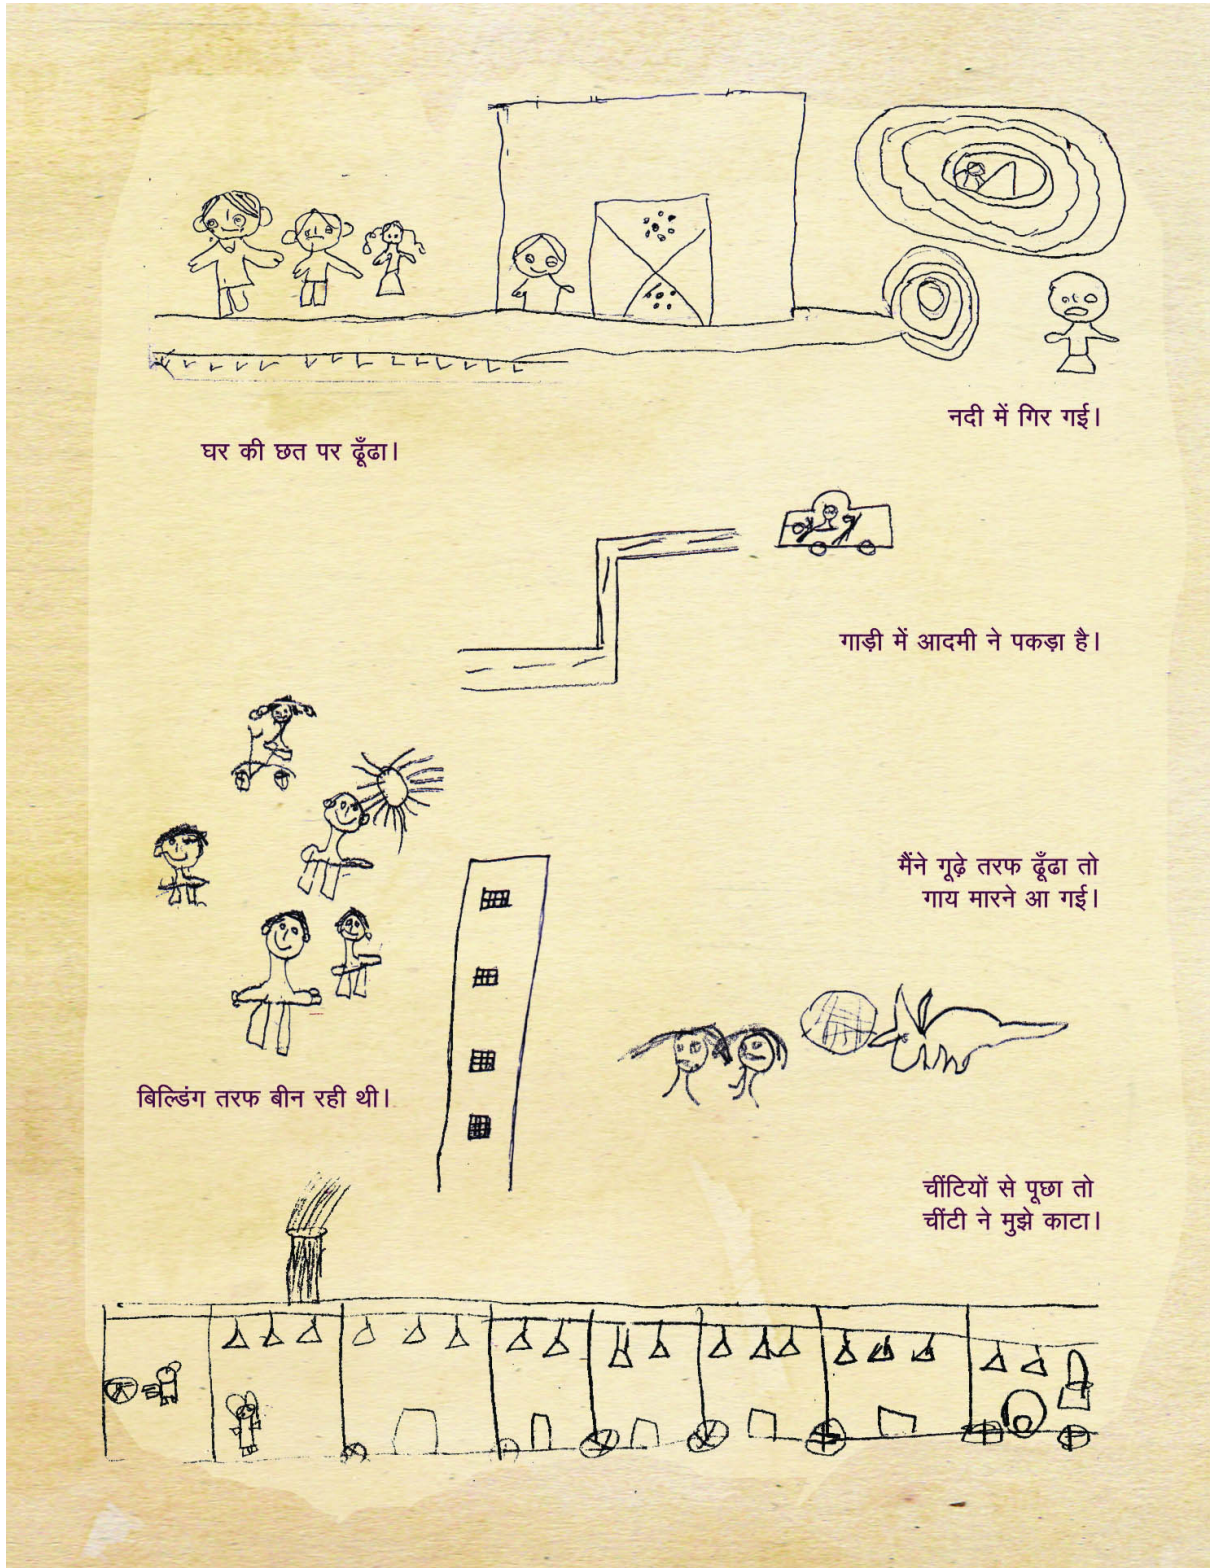 नदी में गिर गई।
घर की छत पर ढूँढा।
गाड़ी में आदमी ने पकड़ा है।
मैंने गूढ़े तरफ ढूँढा तो
गाय मारने आ गई।
बिल्डिंग तरफ बीन रही थी।
चींटियों से पूछा तो
चींटी ने मुझे काटा।